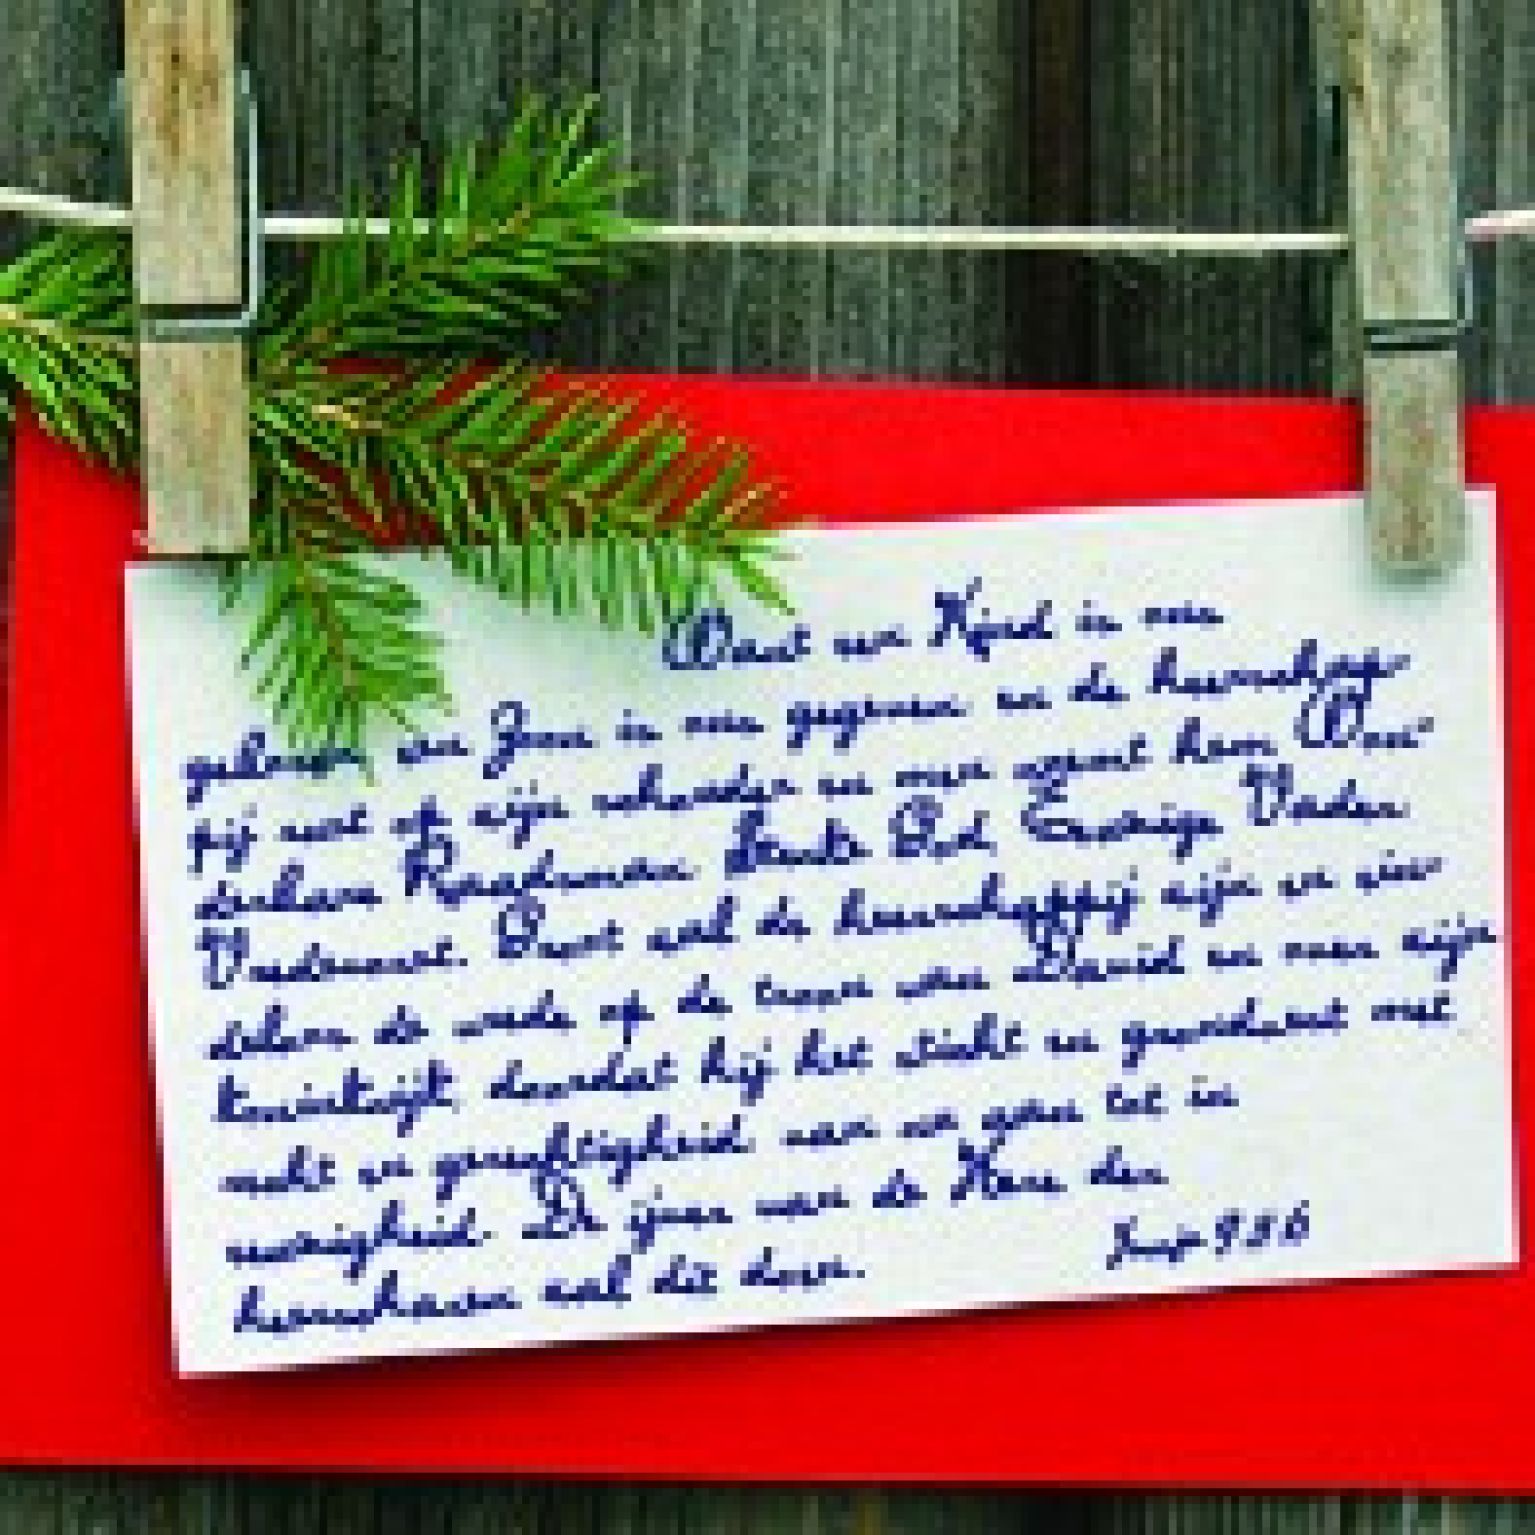 Want een Kind is ons
geboren een Zoon is ons gegeven en de heerschap-
pij rust op zijn schouder en men noemt hem Won-
derbare Raadsman Sterke God, Eeuwige Vader
Vredevorst. Groot zal de heerschappij zijn en ein-
deloos de vrede op de troon van David en over zijn
koninkrijk, doordat hij het sticht en grondvest met
recht en gerechtigheid van nu aan tot in
eeuwigheid. De ijver van de Here der
heerscharen zal dit doen. Jesaja 9:5,6